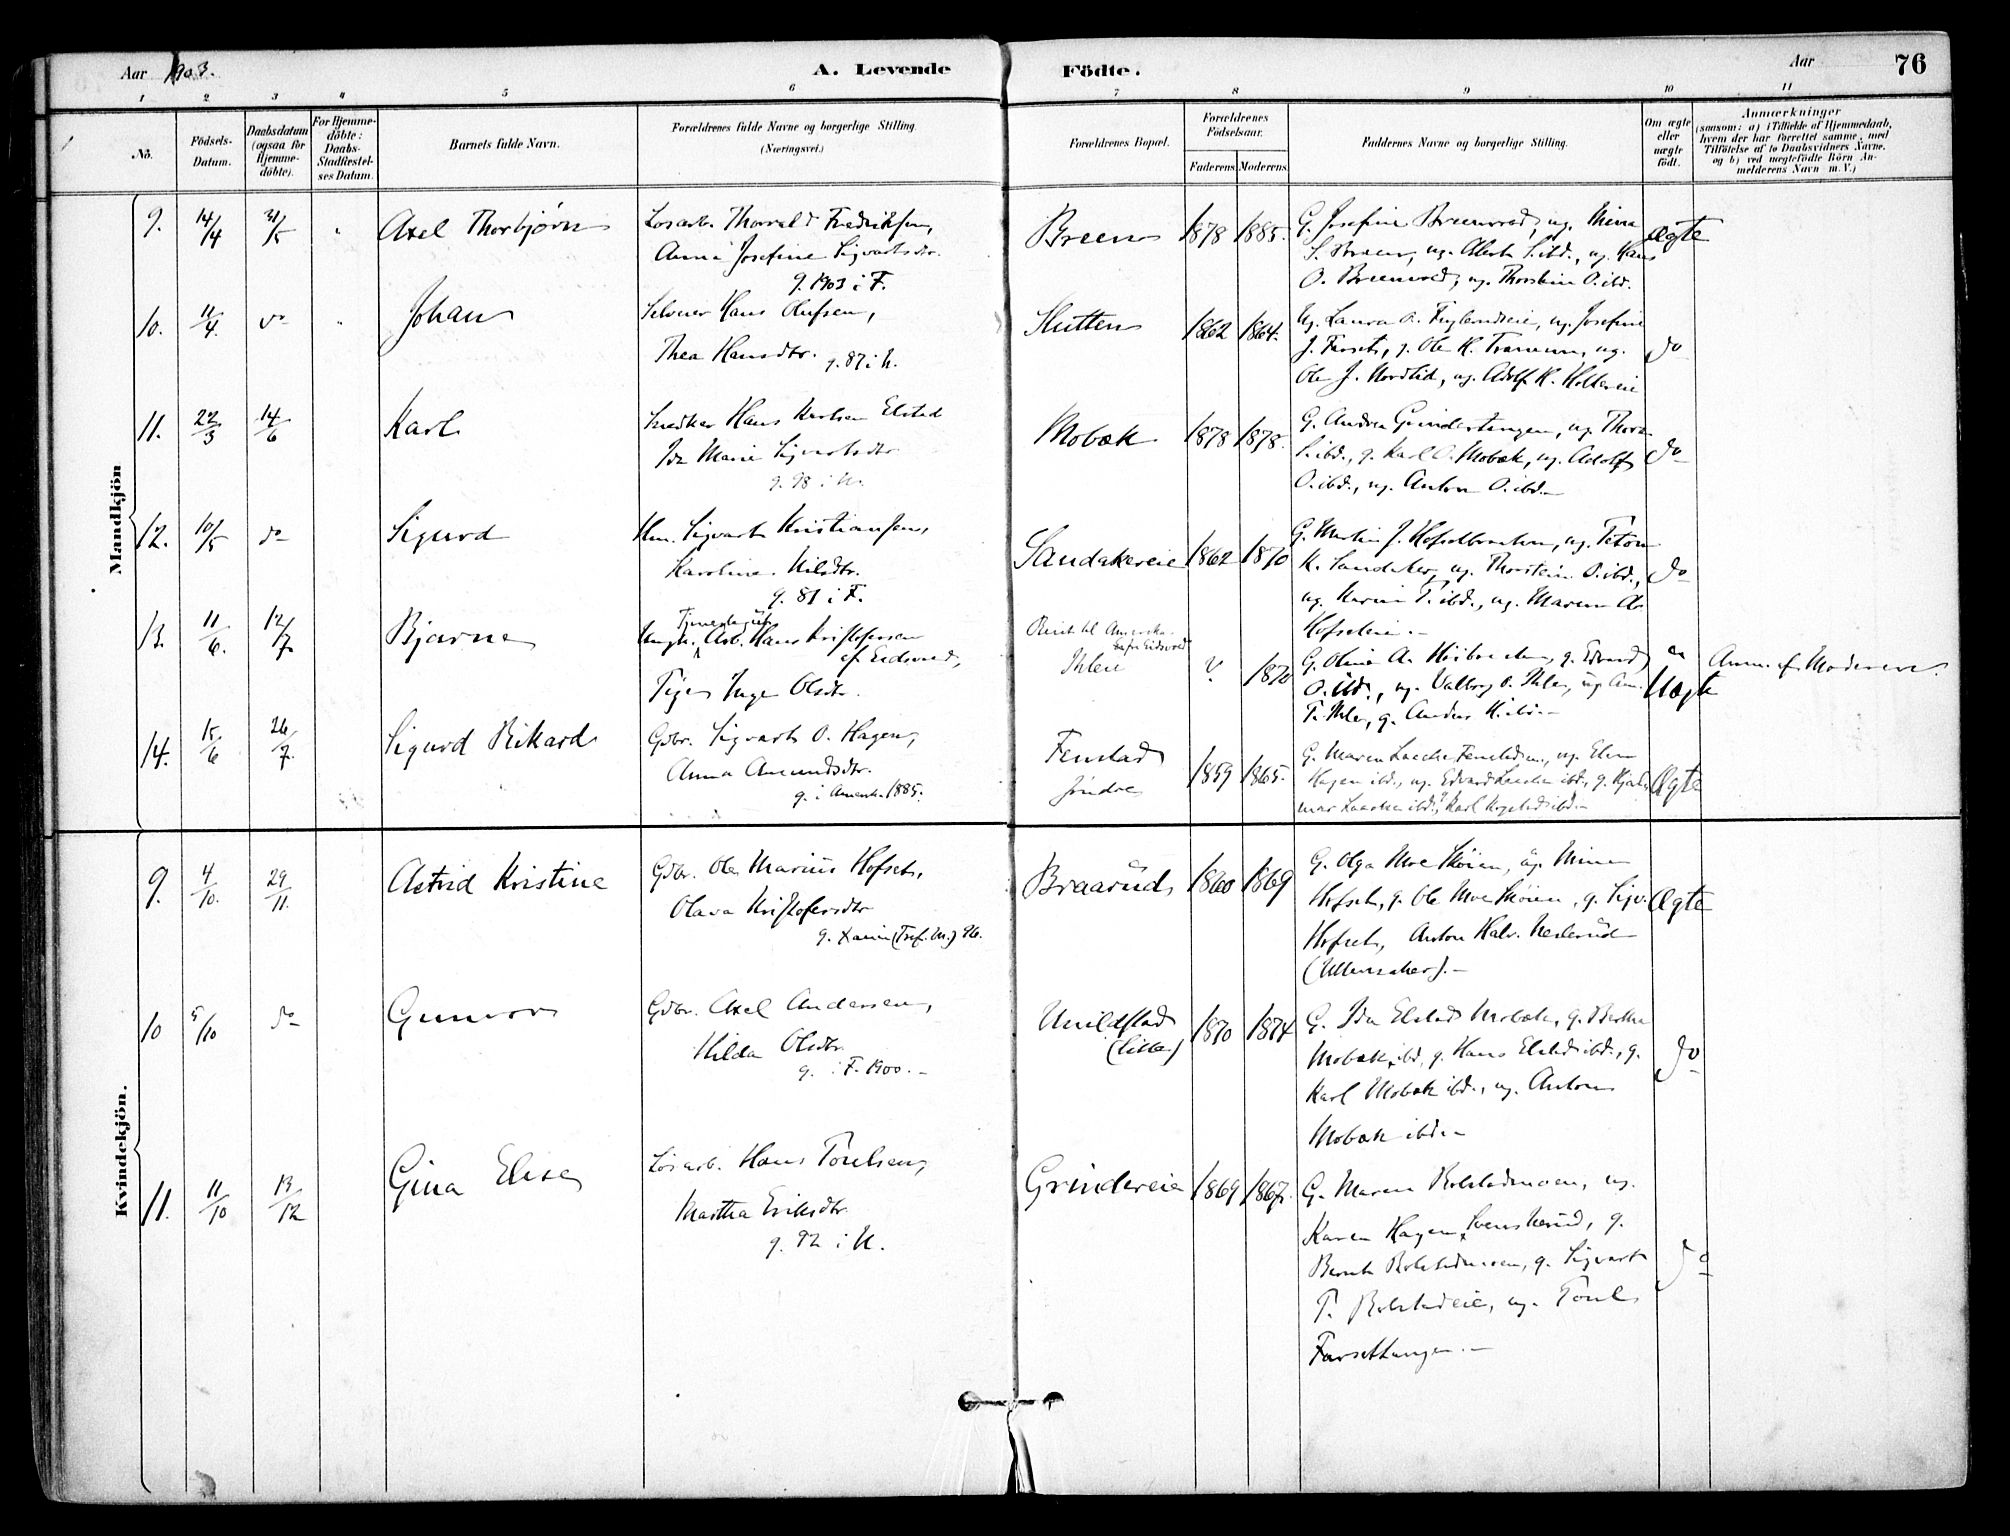 Aar 1903.
A. Levende Födte.
Aar
76
1 2 3 4 5 6 7 8 9 10 11
No.
Födsels-Datum.
Daabsdatum (ogsaa for Hjemmedöbte).
For Hjemmedöbte: Daabs-Stadfæstelses Datum.
Barnets fulde Navn.
Forældrenes fulde Navne og borgerlige Stilling. (Næringsvei.)
Forældrenes Bopæl.
Forældrenes Födselsaar.
Faderens Moderens
Faddernes Navne og borgerlige Stilling.
Om ægte eller uægte födt.
Anmærkninger
(saasom: a) i Tilfælde af Hjemmedaab, hvem der har forrettet samme, med Tilföielse af to Daabsvidners Navne, og b) ved uægtefödte Börn Anmelderens Navn m. V.)
Mandkjön
9. 14/4 31/5 Axel Thorbjørn
Løsarb. Thorvald Fredriksen,
Anna Josefine Sigvartsdtr.
g. 1903 i F.
Breen 1878 1885.
G. Josefine Breenvold, ug. Mina
S. Breen, ug. S. ibd., ug. Hans
O. Breenvold, ug. Thorstein O. ibd.
Ægte
10. 11/4 do Johan
Selveier Hans Olufsen,
Thea Hansdtr. g. 87 i N.
Slutten 1862 1864.
Ug. Laura O. ug. Josefine
J. g. Ole K. ug.
Ole J. Nordlid, ug. Adolf K.
do
11. 22/3 14/6 Karl
Snedker Hans Karlsen Elstad
Ida Marie Sigvartsdtr.
g. 98 i N.
Mobæk 1878 1878.
G. Andrea Grindertangen, ug. Thora
S. ibd., g. Karl O. Mobæk, ug. Adolf
O. ibd., ug. Anton O. ibd.
do
12. 10/5 do Sigurd
Hm. Sigvart Kristiansen,
Karoline Nilsdtr.
g. 81 i F.
Sandakereie 1862 1870
G. Martin J. ug.
K. Sandaker, ug. Thorstein O. ibd.,
ug. Karin T. ibd., ug. Maren A.
do
13. 11/6. 12/7. Bjarne
Ungk. Arb. Hans Kristofersen
af Eidsvold,
Pige Inga Olsdtr.
Reist til Amerika
fra Eidsvold
Ihlere ? 1870
G. Olina A. g. Edvard
O. ibd., ug. Valborg O. Ihler, ug.
T. Ihler, g. Anders
Uægte
Anm. af Moderen.
14. 15/6 26/7 Sigurd Rikard
Gdbr. Sigvart O. Hagen,
Anna Amundsdtr.
g. i Amerika 1885.
Fenstad
søndre
1859 1865.
G. Maren
Hagen ibd., ug. Edvard ibd., g.
ibd., Karl ibd.
Ægte
Kvindekjön.
9. 4/10. 29/11. Astrid Kristine
Gdbr. Ole Marius Hofset,
Olava Kristofersdtr.
Braarud 1860 1869
G. Olga Moe Skøien, ug. Mina
Hofset, g. Ole Moe Skøien, g. Sigv.
Hofset, Anton Halv.
(Ullensaker).
Ægte
10 5/10 do Gunvor
Gdbr. Axel Andersen,
Hilda Olsdtr.
g. i F. 1900.
Unildstad
(Lille)
1870 1874
G. Ida Elstad Mobæk, g. Berthe
Mobæk ibd, g. Hans Elstad ibd., g.
Karl Mobæk ibd., ug. Anton
Mobæk ibd.
do
11. 11/10 13/12 Gina Elise
Løsarb. Hans Poulsen,
Martha Eriksdtr.
g. 92 i N.
Grindereie 1869 1867.
G. Maren Rolstadmoen, ug.
Karen Hagen Svenskerud, g.
Bernt Rolstadmoen, g. Sigvart
T. Rolstadeie, ug. Poul
Farsettangen.
do